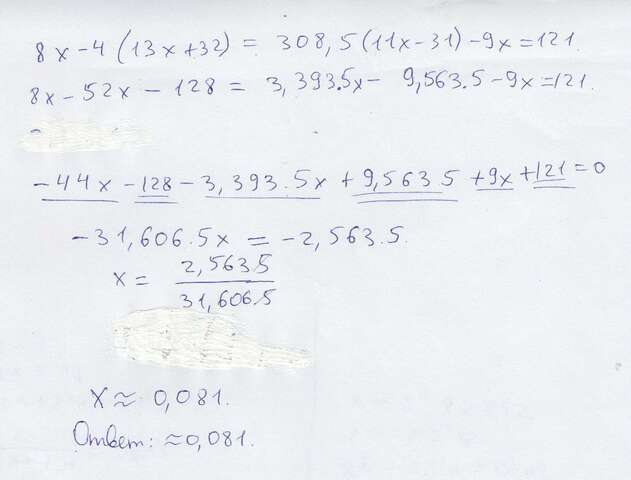 8x - 4 (13x + 32) = 308,5 (11x - 31) - 9x = 121.
8x - 52x - 128 = 3,393.5x - 9,563.5 - 9x = 121.
-44x - 128 - 3,393.5x + 9,563 5 + 9x + 121 = 0
-31,606.5x = -2,563.5.
x = 2,563.5 / 31,606.5
X ≈ 0,081.
Ответ: ≈0,081.